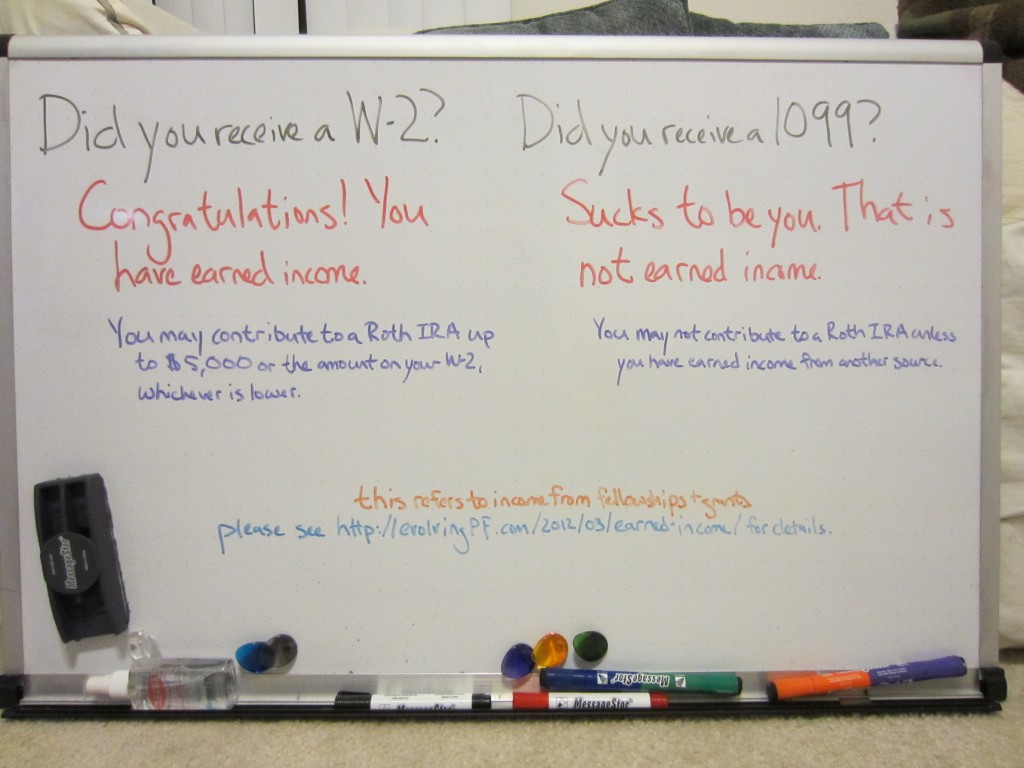 Did you receive a W-2?
Congratulations! You
have earned income.
You may contribute to a Roth IRA up
to $5,000 or the amount on your W-2,
whichever is lower.
Did you receive a 1099?
Sucks to be you. That is
not earned income.
You may not contribute to a Roth IRA unless
you have earned income from another source.
this refers to income from fellowships + grants
please see http://evolvingPF.com/2012/03/earned-income/ for details.
MessageStor
MessageStor
MessageStor
MessageStor